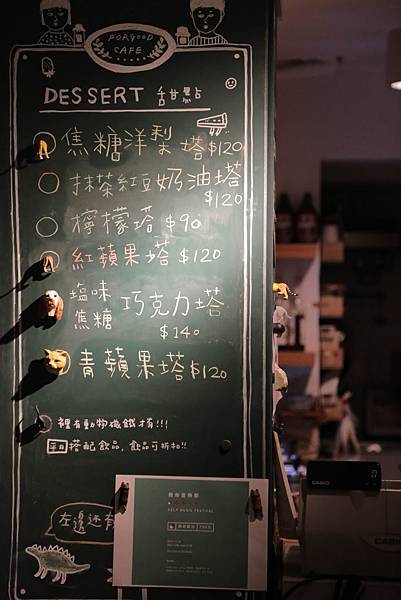 FORGOOD CAFE
DESSERT 甜點
焦糖洋梨塔 $120
抹茶紅豆奶油塔
$120
檸檬塔 $90
紅蘋果塔 $120
塩味焦糖 巧克力塔
$140
青蘋果塔 $120
裡有動物機鐵積!!!
平日 搭配飲品,飲品可折扣!!
左邊還有
CASIO
CASIO